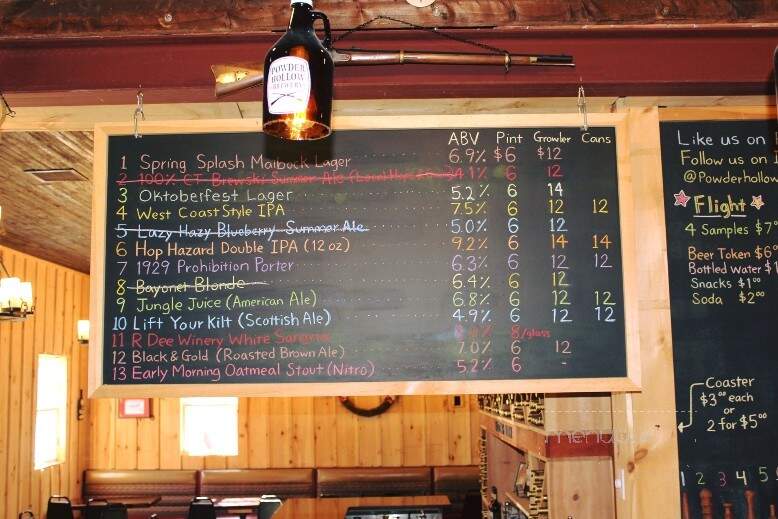 POWDER
HOLLOW
BREWERY
ABV Pint Growler Cans
1 Spring Splash Maibock Lager 6.9% $6 $12
2 100% CT Brewski Summer Ale 4.1% 6 12
3 Oktoberfest Lager 5.2% 6 14
4 West Coast Style IPA 7.5% 6 12 12
5 Lazy Hazy Blueberry Summer Ale 5.0% 6 12
6 Hop Hazard Double IPA (12 oz) 9.2% 6 14 14
7 1929 Prohibition Porter 6.3% 6 12 12
8 Bayonet Blonde 6.4% 6 12
9 Jungle Juice (American Ale) 6.8% 6 12 12
10 Lift Your Kilt (Scottish Ale) 4.9% 6 12 12
11 R Dee Winery White Sangria 8/glass
12 Black & Gold (Roasted Brown Ale) 7.0% 6 12
13 Early Morning Oatmeal Stout (Nitro) 5.2% 6 -
Like us on
Follow us on
@Powderhollow
Flight
4 Samples $7
Beer Token $6
Bottled Water $1
Snacks $1.00
Soda $2.00
Coaster
$3.00 each
or
2 for $5.00
1 2 3 4 5
menu